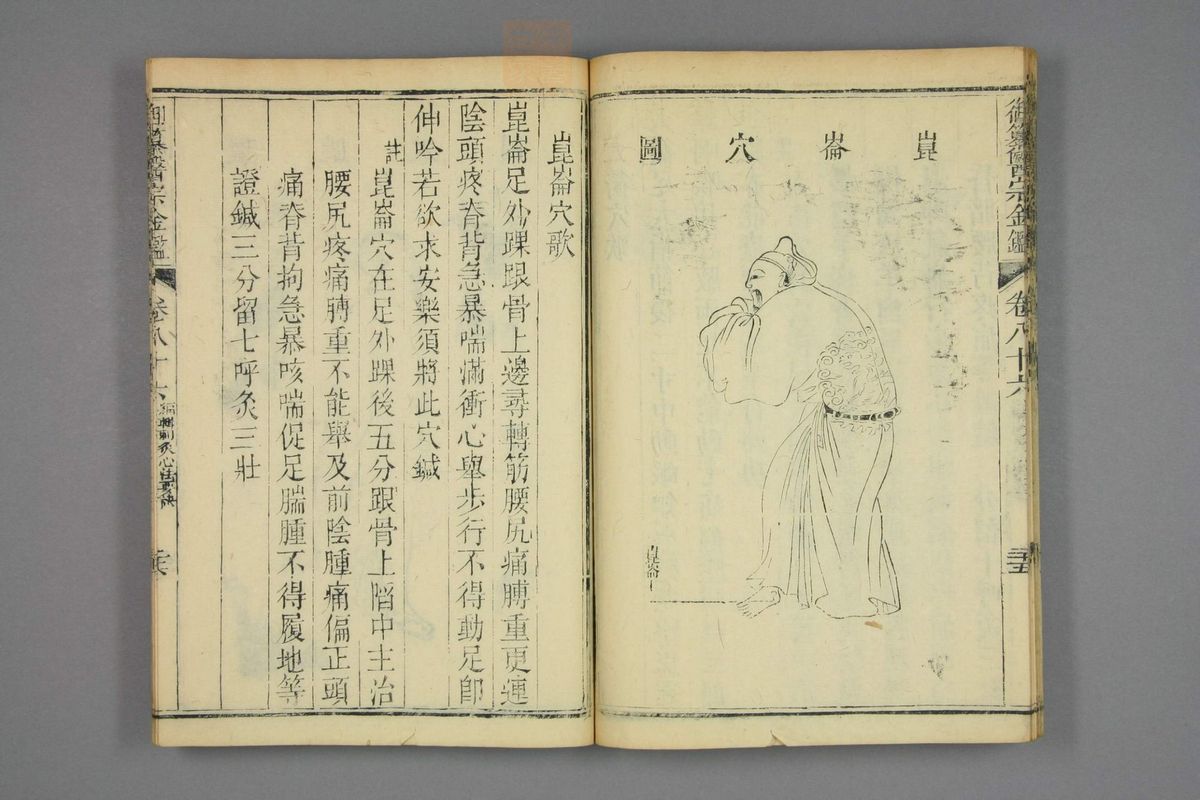 御纂醫宗金鑑
卷八十六
三十五
崑崙穴圖
崑崙
崑崙穴歌
崑崙足外踝跟骨上邊尋轉筋腰尻痛膊重更連
陰頭疼脊背急暴喘滿衝心舉步行不得動足即
伸吟若欲求安樂須將此穴鍼
註崑崙穴在足外踝後五分跟骨上陷中主治
腰尻疼痛膊重不能舉及前陰腫痛偏正頭
痛脊背拘急暴咳喘促足腨腫不得履地等
證鍼三分留七呼灸三壯
御纂醫宗金鑑
卷八十六
編輯刺灸心法要訣